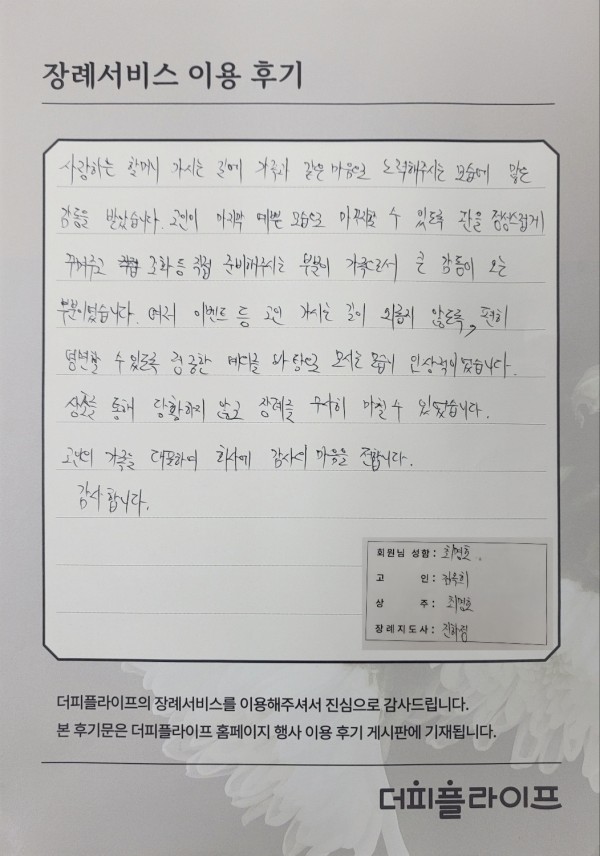 장례서비스 이용 후기
사랑하는 할머니 가시는 길에 가족과 같은 마음으로 노력해주시는 모습에 많은
감동을 받았습니다. 고인이 마지막 예쁜 모습으로 마무리할 수 있도록 관을 정성스럽게
꾸며주고 조화 등 직접 준비해주시는 부분이 가족으로서 큰 감동이 오는
부분이었습니다. 여러 이벤트 등 고인 가시는 길이 외롭지 않도록, 편히
영면할 수 있도록 경공한 예디를 바탕으로 모시는 모습이 인상적이었습니다.
상조를 통해 당황하지 않고 장례를 무사히 마칠 수 있었습니다.
고인의 가족을 대표하여 회사에 감사의 마음을 전합니다.
감사합니다.
회원님 성함 : 최명호
고 인 : 김옥희
상 주 : 최명호
장례지도사 :
더피플라이프의 장례서비스를 이용해주셔서 진심으로 감사드립니다.
본 후기문은 더피플라이프 홈페이지 행사 이용 후기 게시판에 기재됩니다.
더피플라이프